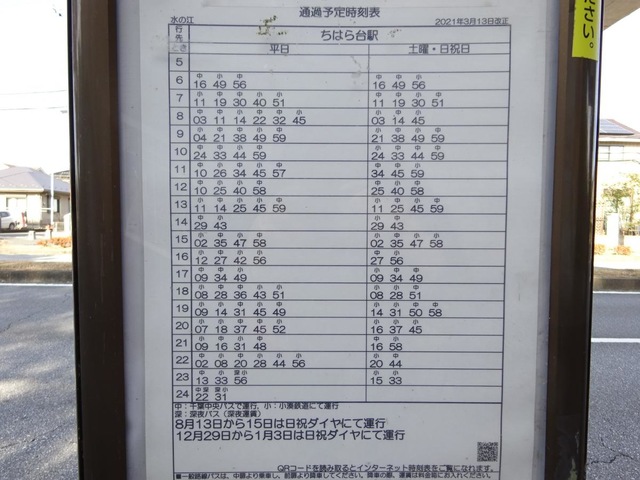 通過予定時刻表
水の江 2021年3月13日改正
行先 ちはら台駅
とき 平日 土曜・日祝日
5
6 16 49 56 16 49 56
7 11 19 30 40 51 11 19 30 51
8 03 11 14 22 32 45 03 14 45
9 04 21 38 49 59 21 38 49 59
10 24 33 44 59 24 33 44 59
11 10 26 34 45 57 34 45 59
12 10 25 40 58 25 40 58
13 11 14 25 45 59 11 25 45 59
14 29 43 29 43
15 02 35 47 58 02 35 47 58
16 12 27 42 56 27 56
17 09 34 49 09 34 49
18 08 28 36 43 51 08 28 51
19 09 14 31 45 49 14 31 50 58
20 07 18 37 45 52 16 37 45
21 09 16 31 48 16 58
22 02 08 20 28 44 56 20 44
23 13 33 56 15 33
24 22 31
中：千葉中央バスで運行、小：小湊鉄道にて運行
深：深夜バス（深夜運賃）
8月13日から15日は日祝ダイヤにて運行
12月29日から1月3日は日祝ダイヤにて運行
QRコードを読み取るとインターネット時刻表をご覧になれます。